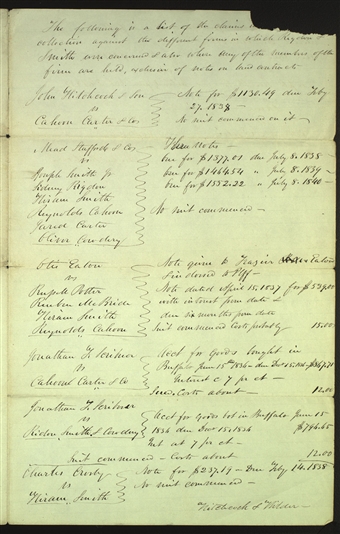 The following is a list of the claims in
collection against the different firms in which Rigdon &
Smith are concerned & also where any of the members of the
firm are held, exclusive of notes on land contracts
John Hitchcock & Son Note for $1136.49 due Feby
vs 27. 1838
Cahoon Carter & Co No suit commenced on it
Mead Stafford & Co Three Notes
vs One for $1377.01 due July 8. 1838
Joseph Smith Jr One for $1464.54 " July 8. 1839
Sidney Rigdon One for $1552.22 " July 8. 1840
Hiram Smith
Reynolds Cahoon No suit commenced
Jared Carter
Oliver Cowdery
Otis Eaton Note given to Frazier & Eaton
vs & indorsed to Plff
Russell Potter Note dated April 15. 1837 for $
Reuben McBride with interest from date &
Hiram Smith due six months from date
Reynolds Cahoon Suit commenced Costs probably 15.00
Jonathan F. Scribner Acct for Goods bought in
vs Buffalo June 15th 1836 due Dec 15.
Cahoon Carter & Co Interest @ 7 pr ct
Costs about 12.00
Jonathan F. Scribner
vs Acct for Goods bot in Buffalo June 15
Rigdon Smith & Cowdery 1836 due Dec 15. 1836 $794.65
Int at 7 pr ct
Suit commenced Costs about 12.00
Charles Crosby Note for $237.19 Due Feby 14. 1838
vs No suit commenced
Hiram Smith
Hitchcock & Wilder